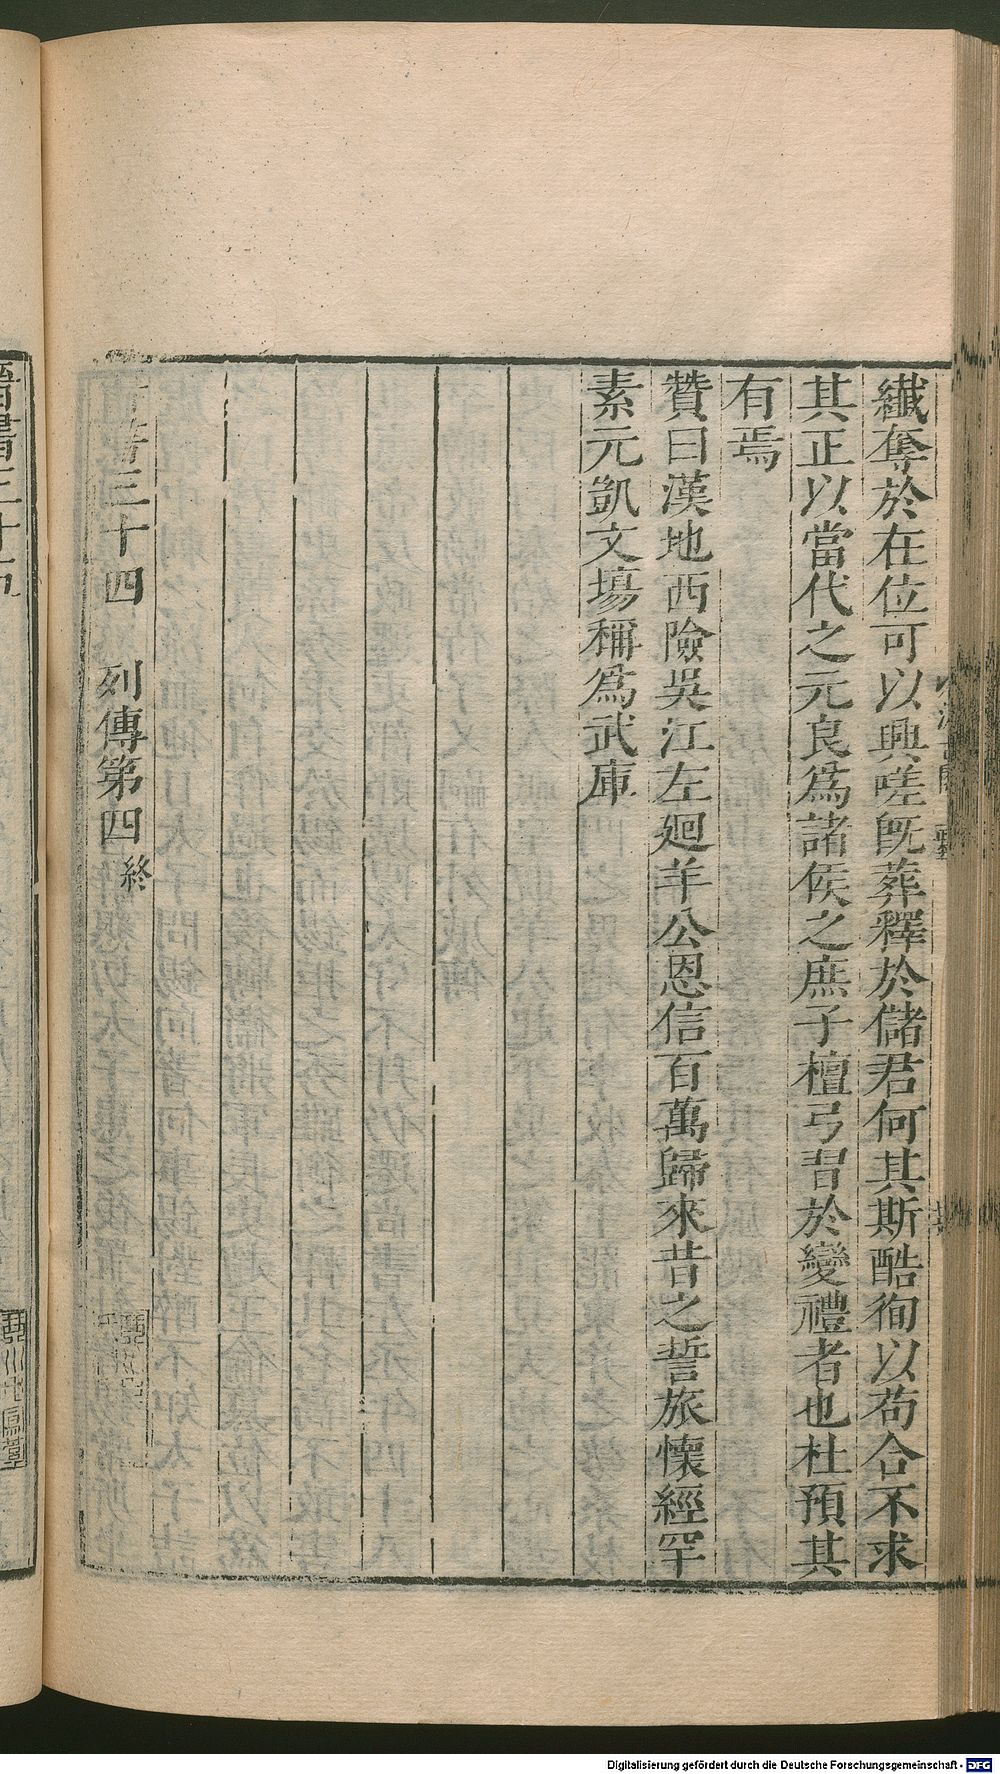 纖奪於在位可以興嗟旣葬釋於儲君何其斯酷徇以苟合不求
其正以當代之元良爲諸侯之庶子檀弓習於變禮者也杜預其
有焉
贊曰漢地西險吳江左廻羊公恩信百萬歸來昔之誓旅懷經罕
素元凱文場稱爲武庫
晉書三十四 列傳第四終
晉書三十五
Digitalisierung gefördert durch die Deutsche Forschungsgemeinschaft - DFG